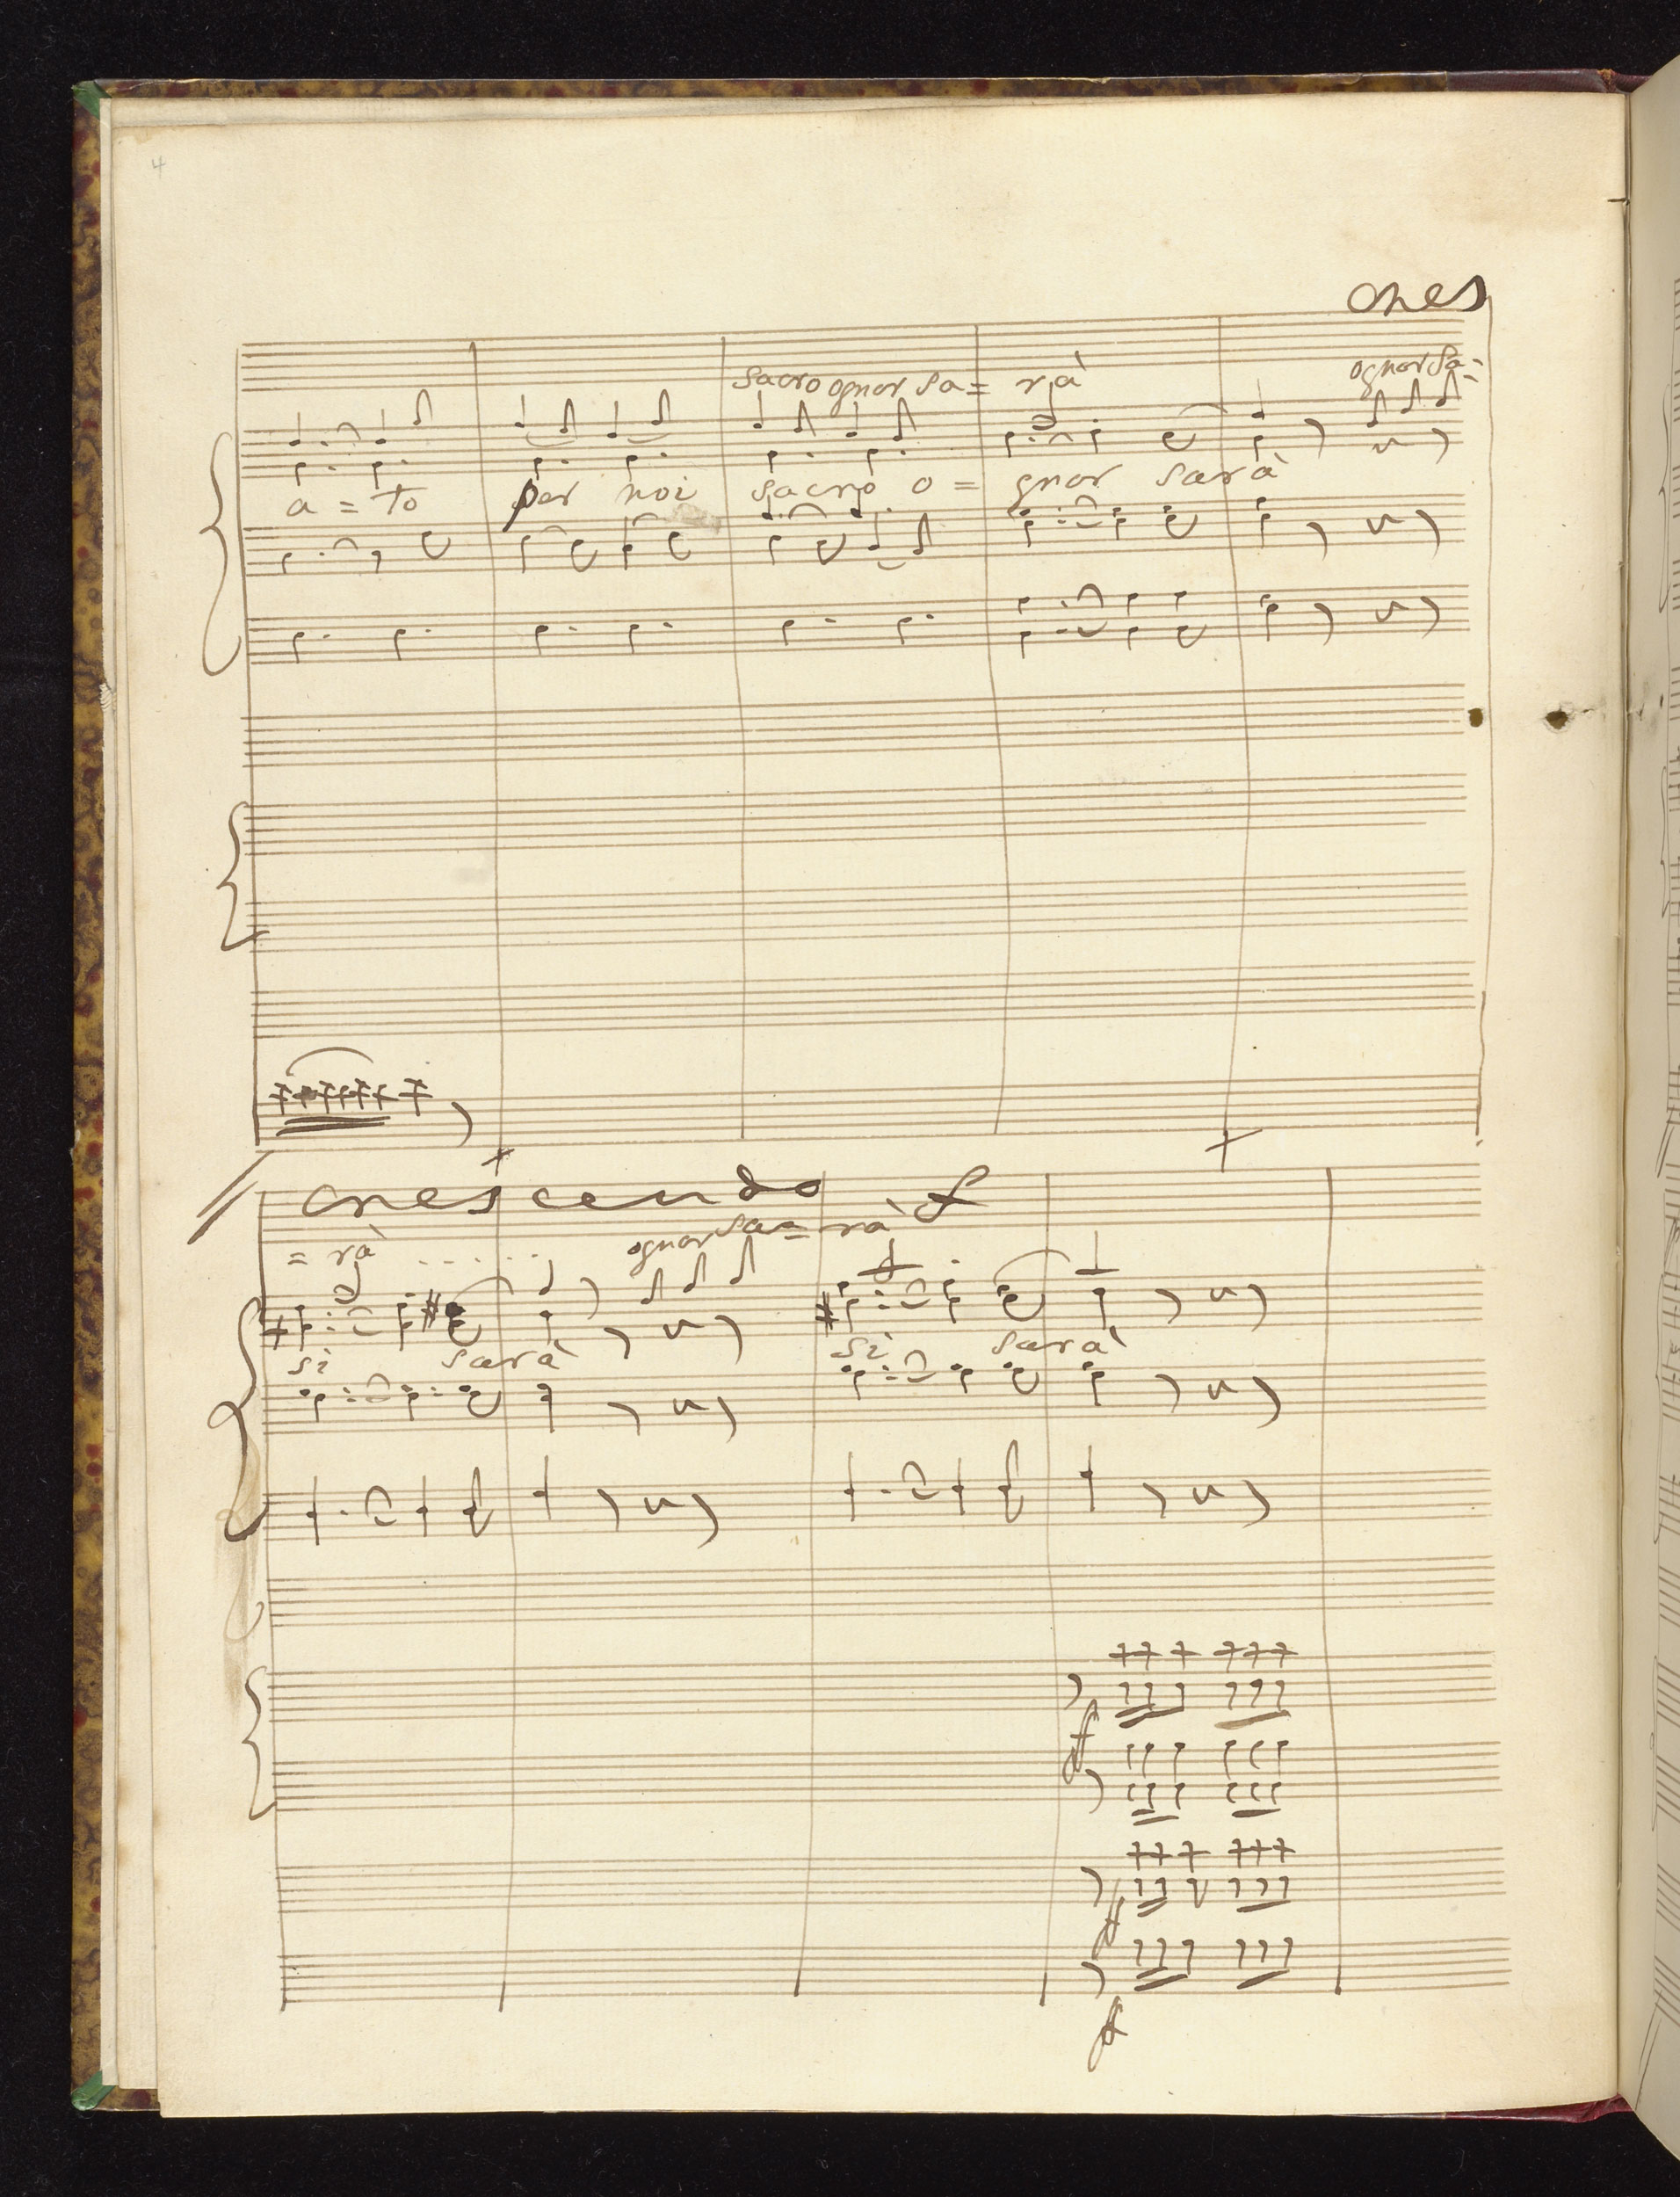 4
cres
sacro ognor sa= rà ognor sa=
a = to per noi sacro o = gnor sarà
crescendo f
= rà ..... ognor sa= rà
sì sarà sì sarà
ff
ff
ff